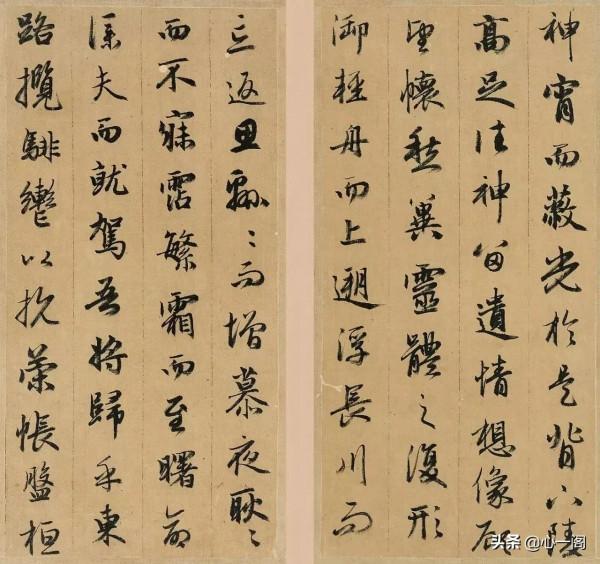 神宵而蔽光於是背下陵
高足往神留遺情想像顧
望懷愁冀靈體之復形
御輕舟而上遡浮長川而
忘返思緜〻而增慕夜耿〻
而不寐霑繁霜而至曙命
僕夫而就駕吾將歸乎東
路攬騑轡以抗策悵盤桓
头条 @心一阁